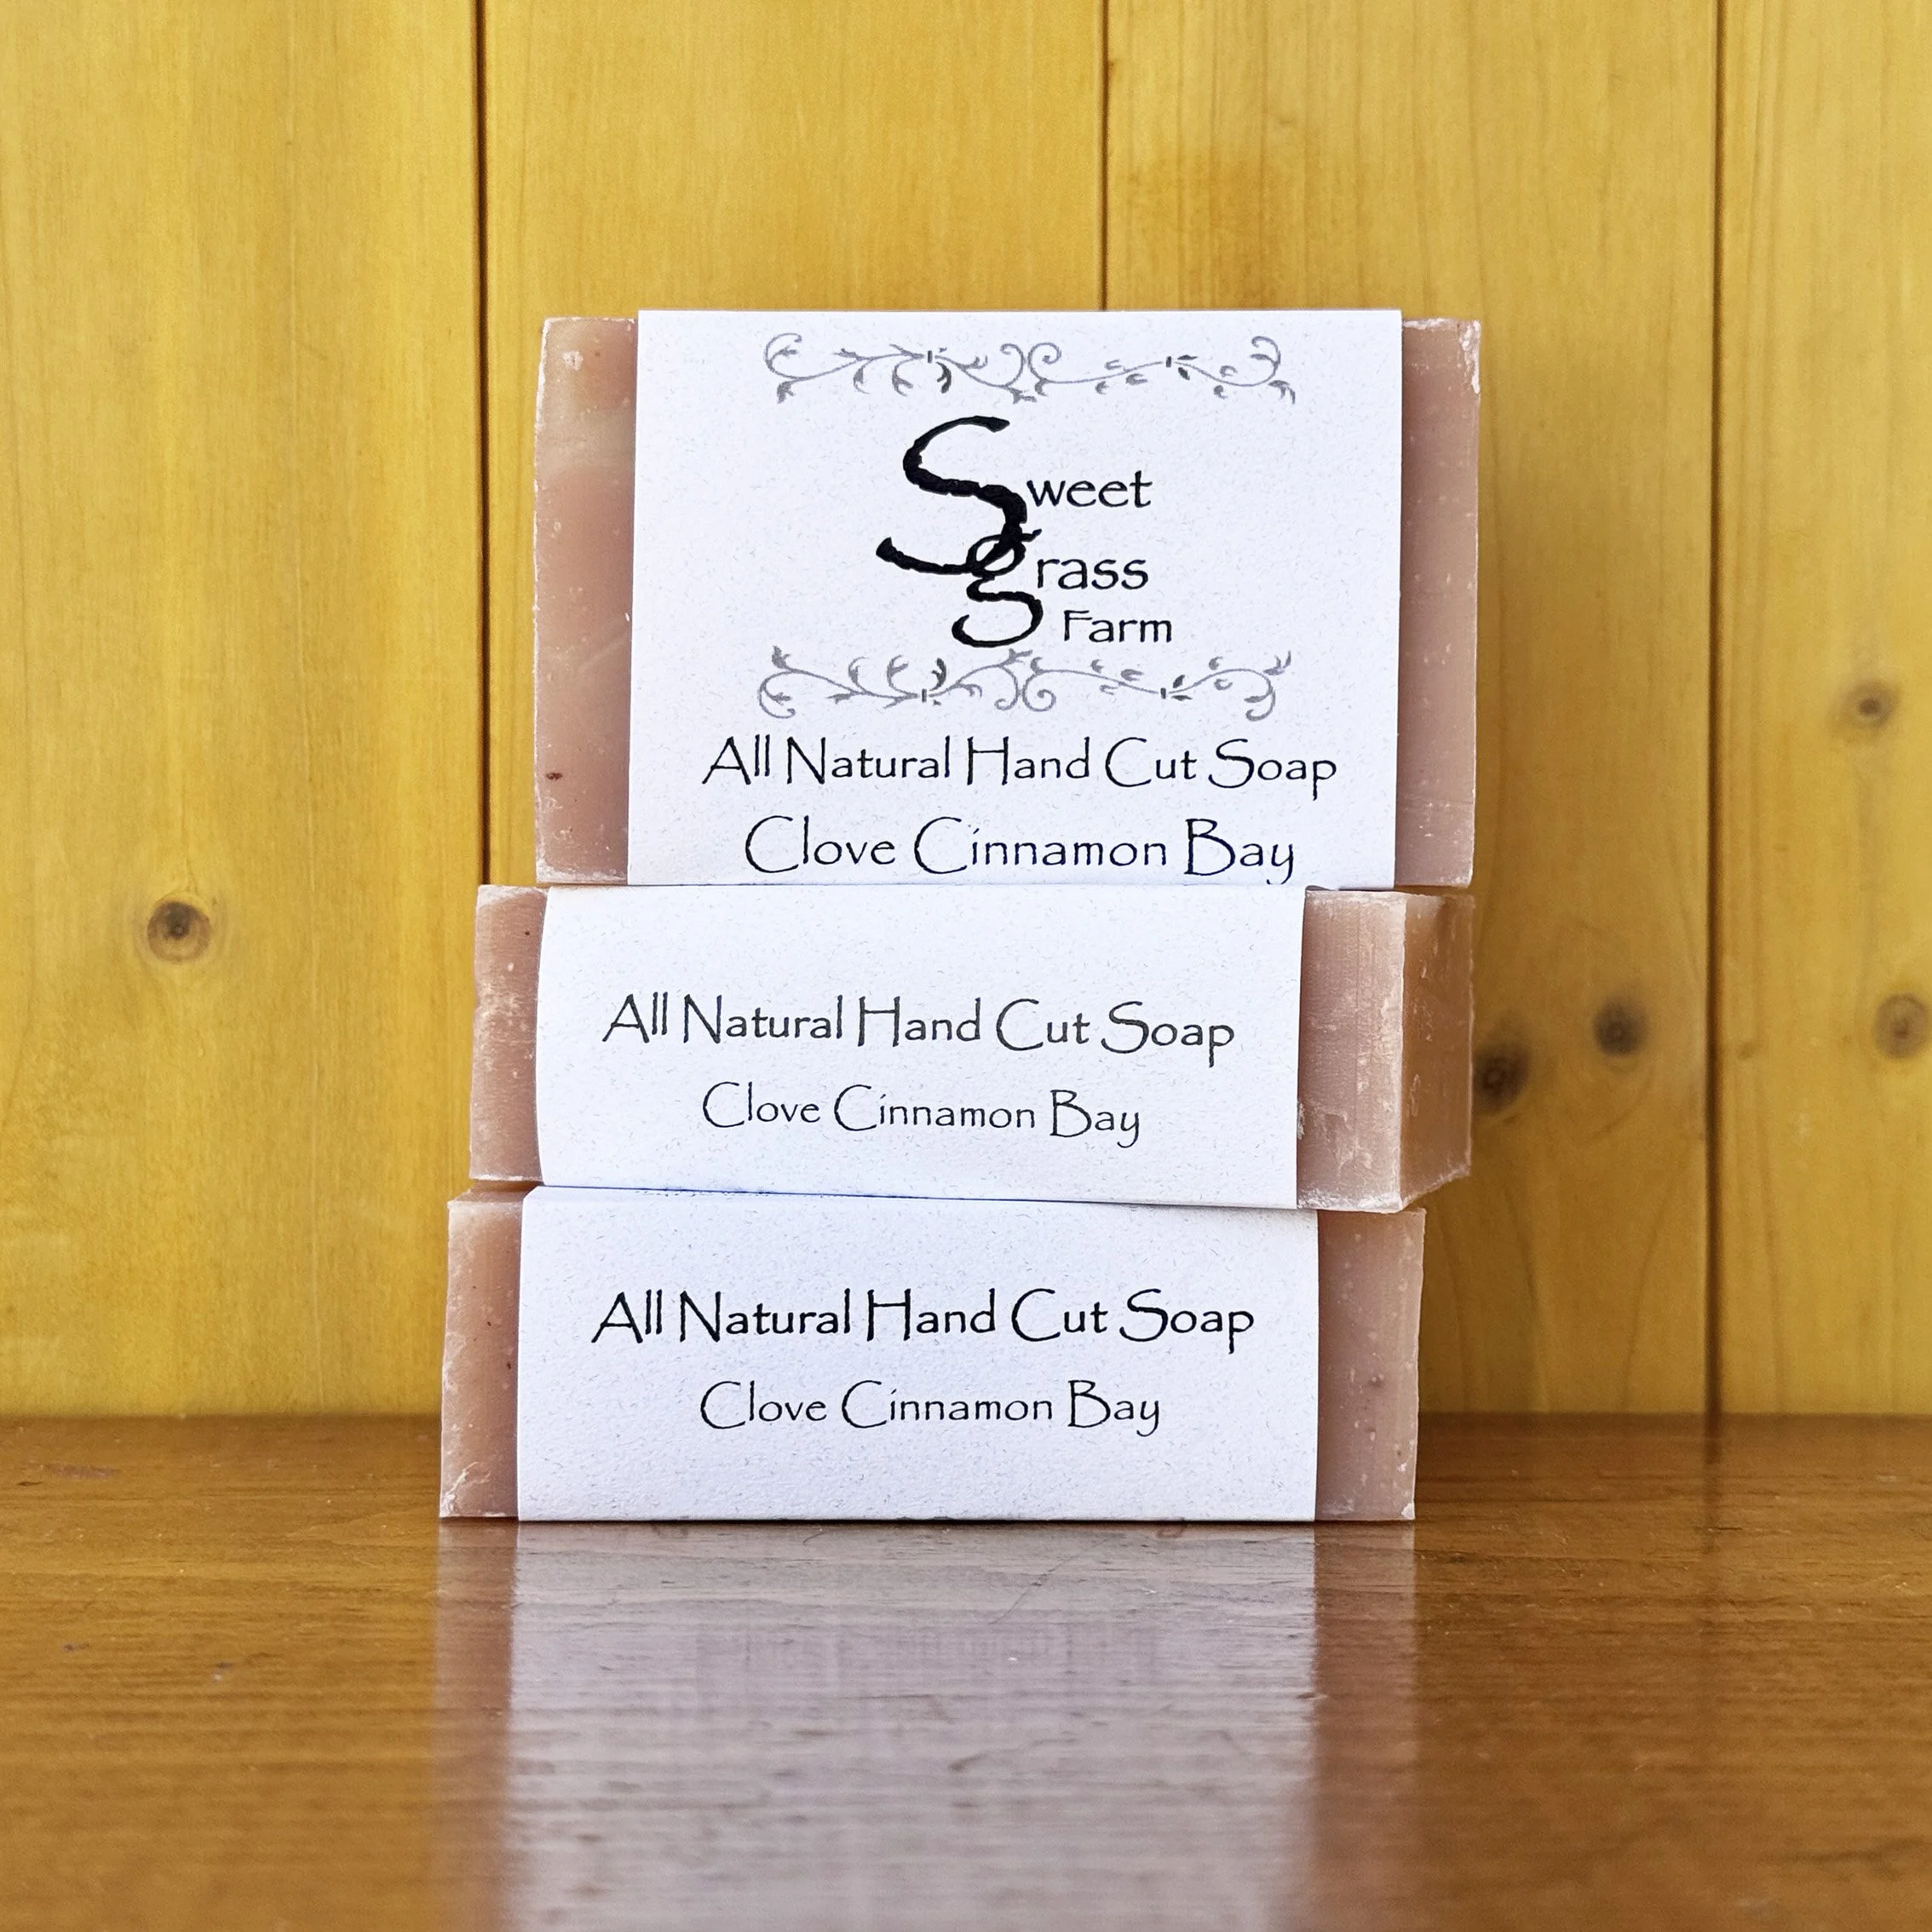 Sweet
grass
Farm
All Natural Hand Cut Soap
Clove Cinnamon Bay
All Natural Hand Cut Soap
Clove Cinnamon Bay
All Natural Hand Cut Soap
Clove Cinnamon Bay